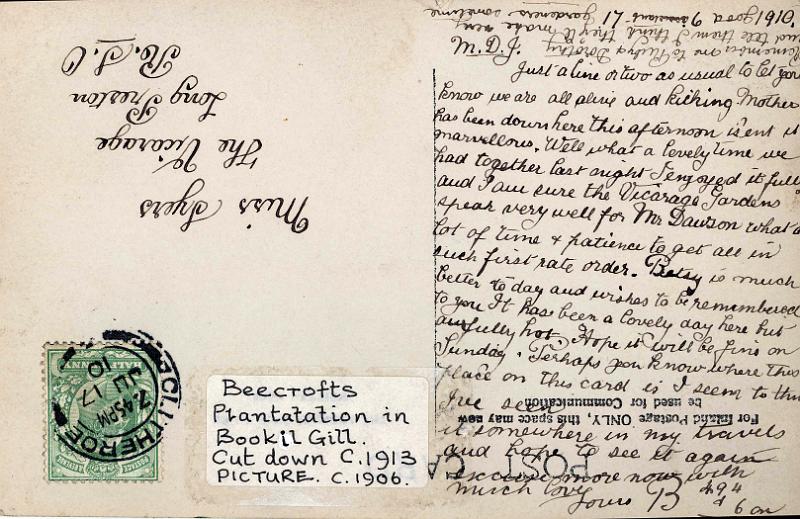 Miss Syers
The Vicarage
Long Preston
R.S.O
CLITHEROE
7.45PM
JU 17
10
HALFPENNY
Beecrofts
Plantatation in
Bookil Gill.
Cut down C.1913
PICTURE. C.1906.
POST CA
For Inland Postage ONLY, this space may
be used for Communication
17 6 1910.
M.D.J.
Just a line or two as usual to let you
know we are all alive and kicking Mother
has been down here this afternoon is'ent it
marvellous. Well what a lovely time we
had together last night I enjoyed it full
and I am sure the Vicarage Gardens
spear very well for Mr Dawson what a
lot of time & patience to get all in
such first rate order. Betsy is much
better to day and wishes to be remembered
to you It has been a lovely day here but
awfully hot. Hope it will be fine on
Sunday. Perhaps you know where this
place on this card is I seem to thin
I've seen
it somewhere in my travels
and hope to see it again
excuse more now with
much love
Yours B
Remember me to Ruby & Dorothy
and tell them I think they'll make very
good gardeners sometime